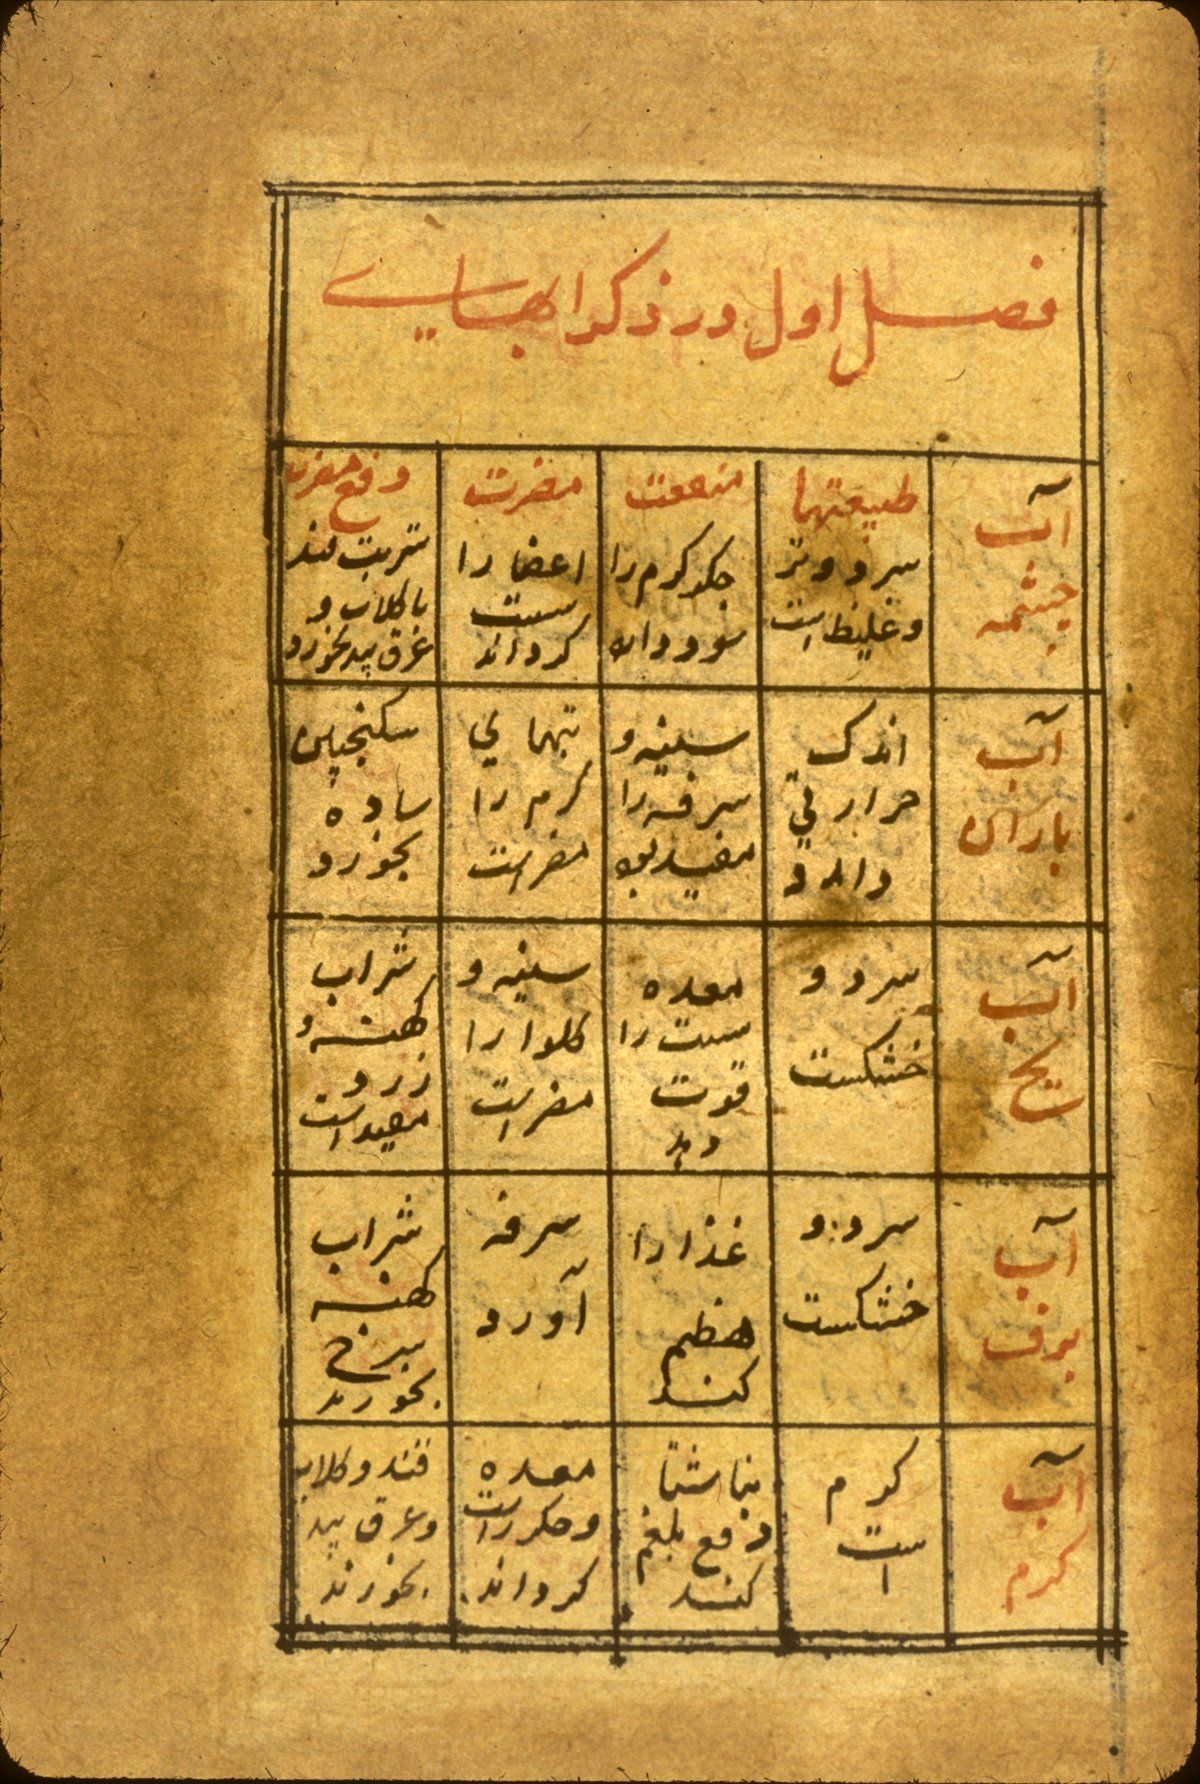 فصل اول در ذکر ابهاے
آب
چشمه
طبیعتها
سرد و تر
و غلیظ است
منفعت
جکر کرم را
سود دارد
مضرت
اعضا را
سست
کرداند
دفع مضرت
شربت قند
با کلاب و
عرق بید بخورد
آب
باران
اندک
حرارتي
دارد
سینه و
سرفه را
مفید بود
تبهاي
کرم را
مضر است
سکنجبین
ساده
بخورد
آب
یخ
سرد و
خشکست
معده
سست را
قوت
دهد
سینه و
کلو را
مضر است
شراب
کهنه و
زرد
مفید است
آب
برف
سرد و
خشکست
غذا را
هضم
کند
سرفه
آورد
شراب
کهنه
سرخ
بخورند
آب
کرم
کرم
است
بناشتا
دفع بلغم
کند
معده
و جکر را سست
کرداند
قند و کلاب
و عرق بید
بخورند